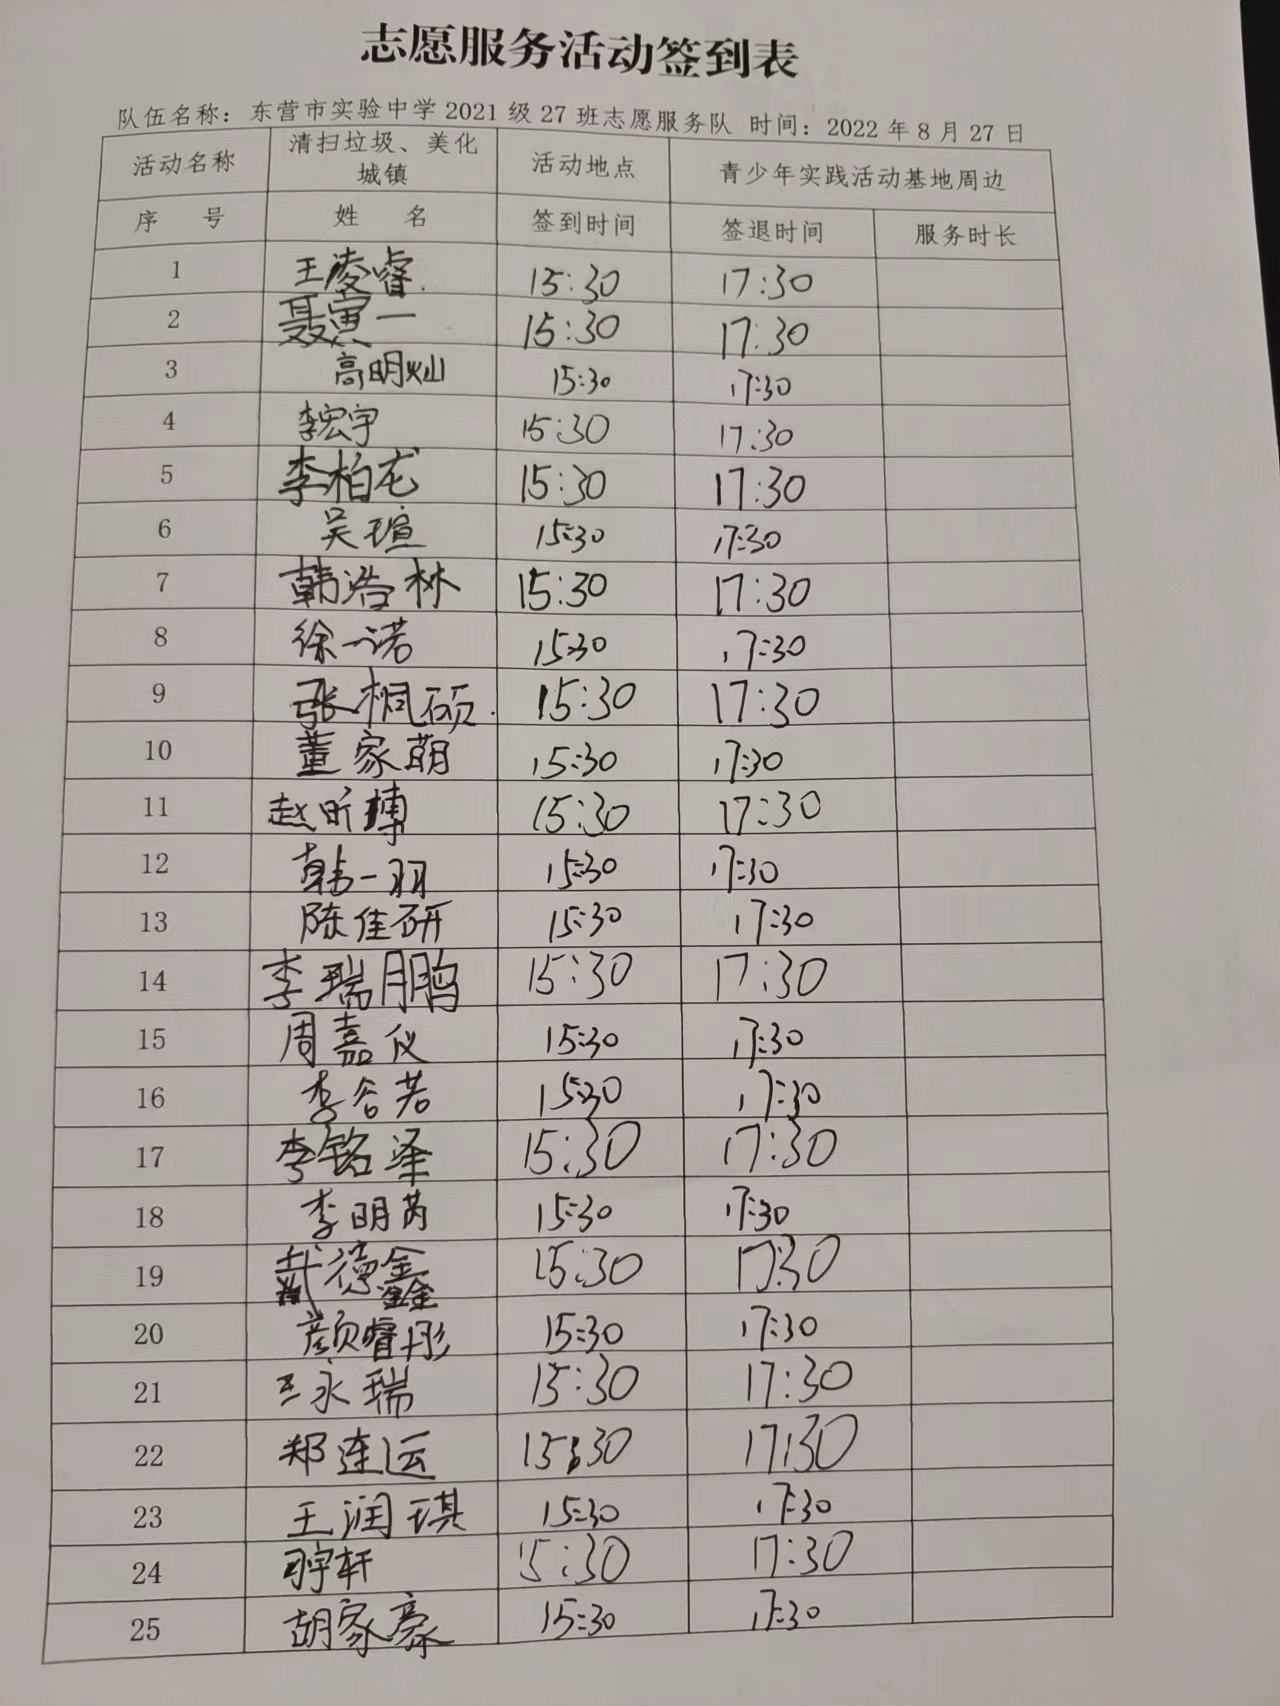 志愿服务活动签到表
队伍名称：东营市实验中学2021级27班志愿服务队 时间：2022年8月27日
活动名称 清扫垃圾、美化城镇 活动地点 青少年实践活动基地周边
序 号 姓 名 签到时间 签退时间 服务时长
1 王凌睿 15:30 17:30
2 聂寅一 15:30 17:30
3 高明灿 15:30 17:30
4 李宏宇 15:30 17:30
5 李柏龙 15:30 17:30
6 吴瑄 15:30 17:30
7 韩浩林 15:30 17:30
8 徐一诺 15:30 17:30
9 张桐硕 15:30 17:30
10 董家萌 15:30 17:30
11 赵昕博 15:30 17:30
12 韩一羽 15:30 17:30
13 陈佳研 15:30 17:30
14 李瑞鹏 15:30 17:30
15 周嘉仪 15:30 17:30
16 李谷若 15:30 17:30
17 李铭泽 15:30 17:30
18 李明芮 15:30 17:30
19 武德鑫 15:30 17:30
20 颜睿彤 15:30 17:30
21 王永瑞 15:30 17:30
22 郑连运 15:30 17:30
23 王润琪 15:30 17:30
24 15:30 17:30
25 胡家豪 15:30 17:30